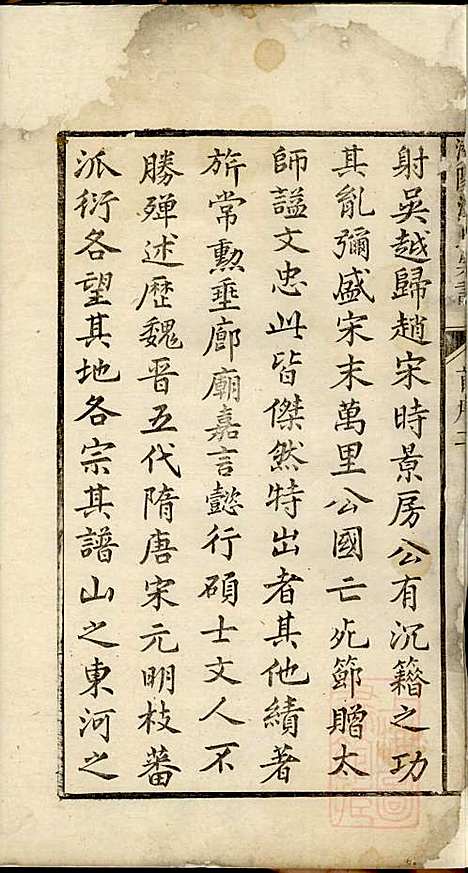 射吳越歸趙宋時景房公有沉籍之功
其亂彌盛宋末萬里公國亡死節贈太
師謚文忠此皆傑然特出者其他績著
旂常勲垂廊廟嘉言懿行碩士文人不
勝殫述歷魏晉五代隋唐宋元明枝蕃
派衍各望其地各宗其譜山之東河之